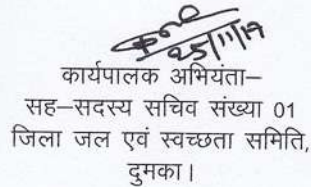 25/11/19
कार्यपालक अभियंता–
सह–सदस्य सचिव संख्या 01
जिला जल एवं स्वच्छता समिति,
दुमका।